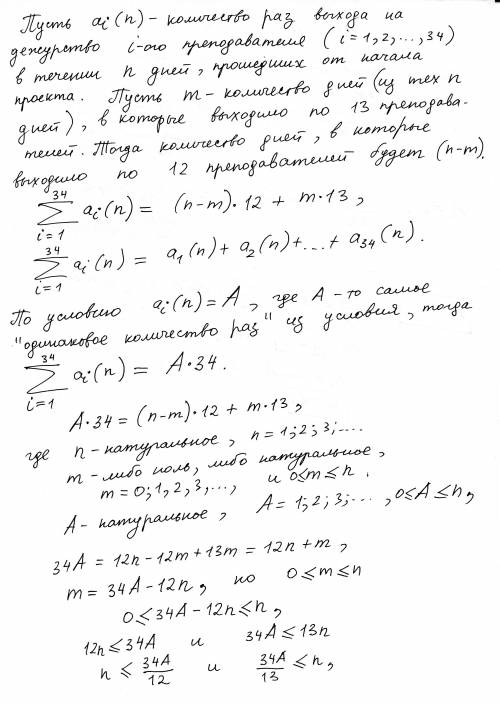 Пусть aᵢ(n) - количество раз выхода на
дежурство i-ого преподавателя (i=1,2,...,34)
в течении n дней, прошедших от начала
проекта. Пусть m - количество дней (из тех n
дней), в которые выходило по 13 преподава-
телей. Тогда количество дней, в которые
выходило по 12 преподавателей будет (n-m).
∑_{i=1}^{34} aᵢ(n) = (n-m)·12 + m·13,
∑_{i=1}^{34} aᵢ(n) = a₁(n) + a₂(n) + ... + a₃₄(n).
По условию aᵢ(n) = A, где A - то самое
"одинаковое количество раз" из условия, тогда
∑_{i=1}^{34} aᵢ(n) = A·34.
A·34 = (n-m)·12 + m·13,
где n - натуральное, n = 1;2;3;....
m - либо ноль, либо натуральное,
m = 0;1,2,3,..., и 0≤m≤n.
A - натуральное, A = 1;2;3;..., 0≤A≤n,
34A = 12n - 12m + 13m = 12n + m,
m = 34A - 12n, но 0≤m≤n
0 ≤ 34A - 12n ≤ n,
12n ≤ 34A и 34A ≤ 13n
n ≤ 34A/12 и 34A/13 ≤ n,